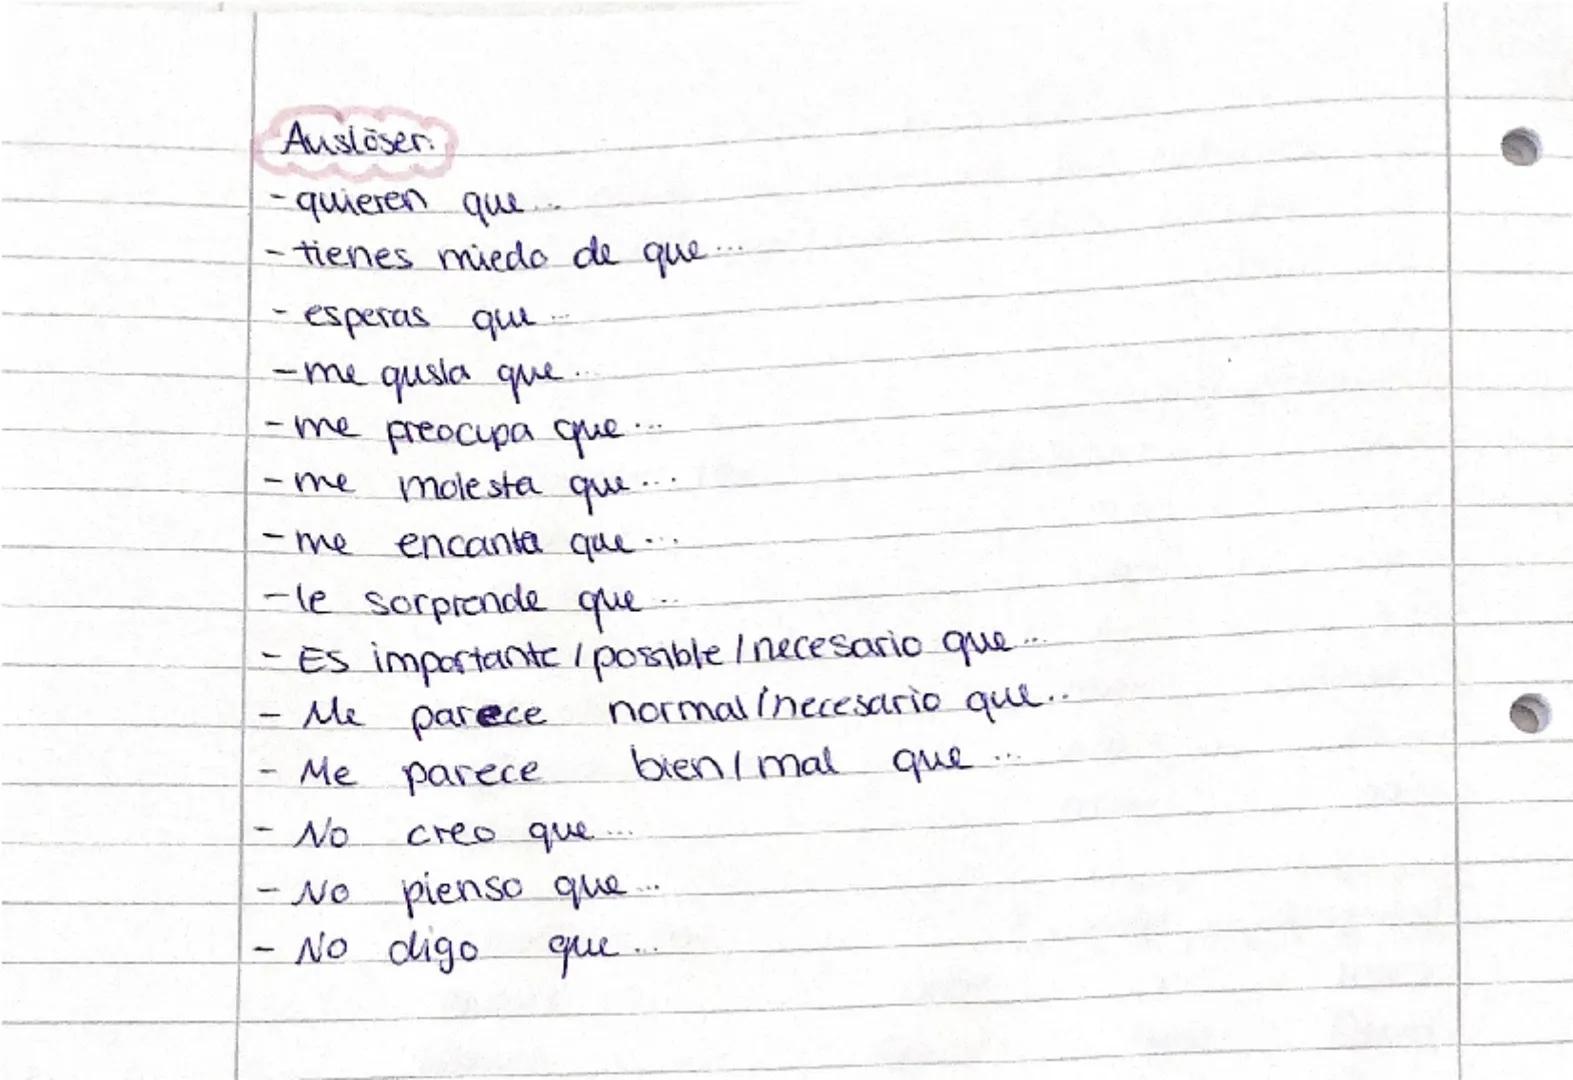 Auslöser:
- quieren que...
- tienes miedo de que...
- esperas que...
- me gusta que...
- me preocupa que...
- me molesta que...
- me encanta que...
- le sorprende que...
- Es importante / possible / necesario que...
- Me parece normal / necesario que...
- Me parece bien / mal que...
- No creo que...
- No pienso que...
- No digo que...